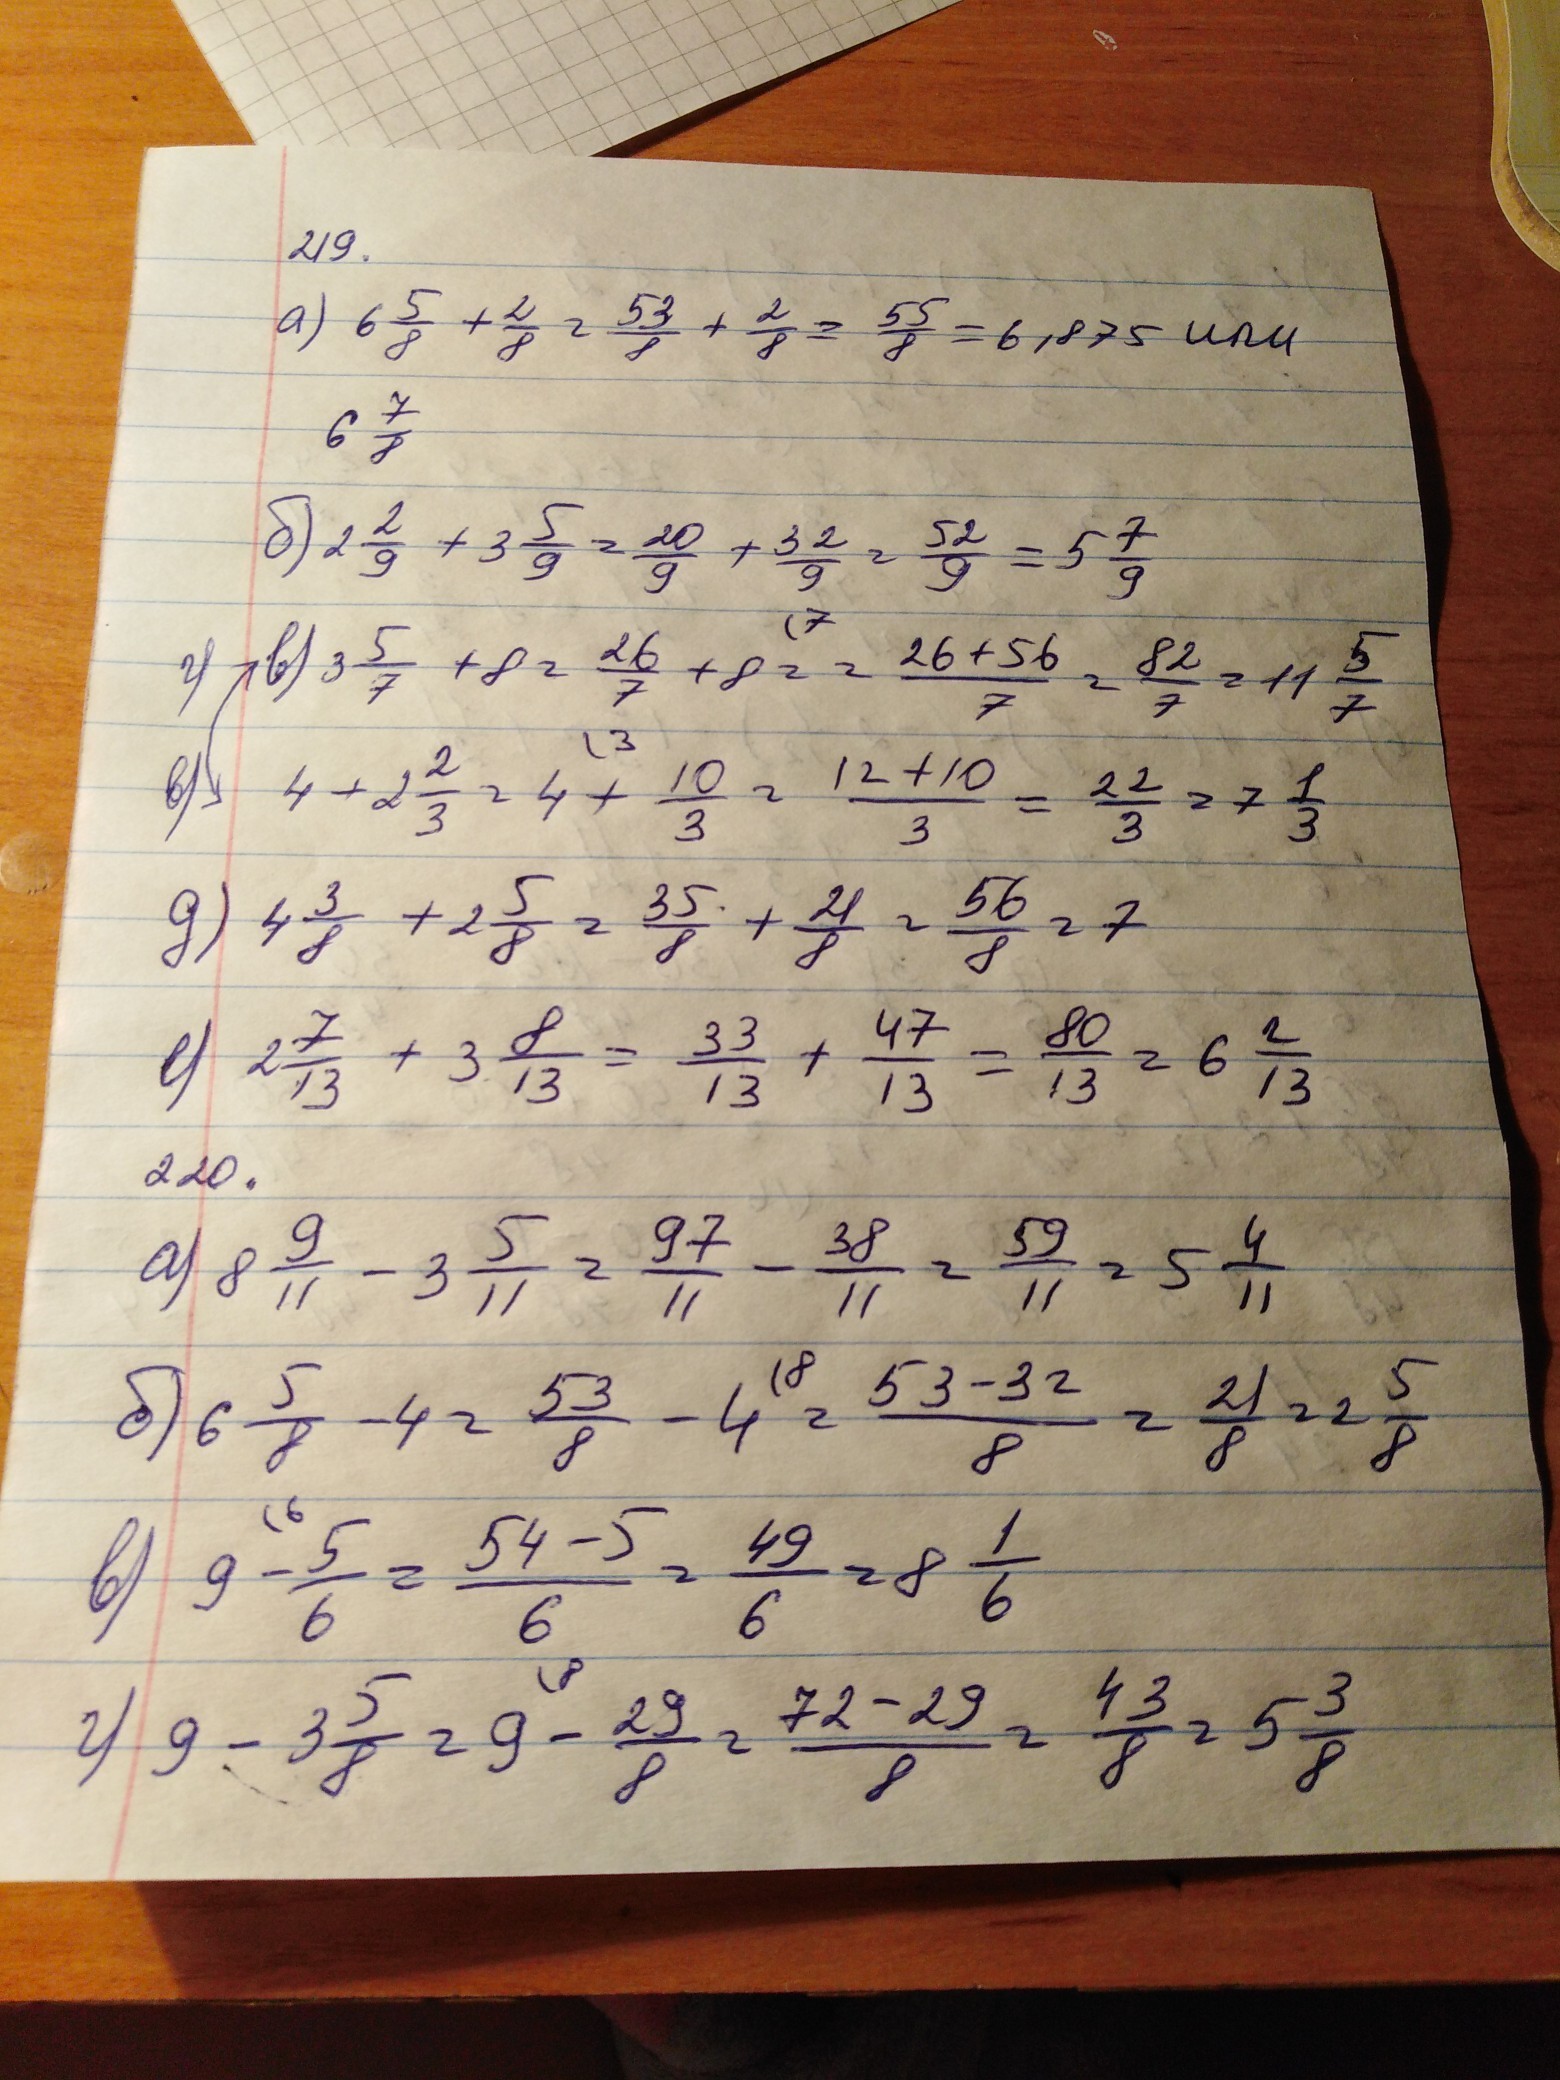 219.
а) 6 5/8 + 2/8 = 53/8 + 2/8 = 55/8 = 6,875 или
6 7/8
б) 2 2/9 + 3 5/9 = 20/9 + 32/9 = 52/9 = 5 7/9
г) в) 3 5/7 + 8 = 26/7 + 8 (7 = = (26+56)/7 = 82/7 = 11 5/7
в) 4 + 2 2/3 = 4 (3 + 10/3 = (12+10)/3 = 22/3 = 7 1/3
д) 4 3/8 + 2 5/8 = 35/8 + 21/8 = 56/8 = 7
е) 2 7/13 + 3 8/13 = 33/13 + 47/13 = 80/13 = 6 2/13
220.
а) 8 9/11 - 3 5/11 = 97/11 - 38/11 = 59/11 = 5 4/11
б) 6 5/8 - 4 = 53/8 - 4 (8 = (53-32)/8 = 21/8 = 2 5/8
в) 9 (6 - 5/6 = (54-5)/6 = 49/6 = 8 1/6
г) 9 - 3 5/8 = 9 (8 - 29/8 = (72-29)/8 = 43/8 = 5 3/8